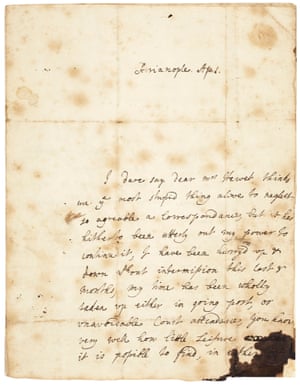 Arianople. Ap: 1.
I dare say dear mrs Hewet thinks
me ye most stupid thing alive to neglect
so agreable a Correspondance, but it has
hitherto been utterly out my power to
continu it, I have been hurried up &
down without intermission this last 8
months, my time has been wholly
taken up either in going post, or
unavoidable Court attendance, You know
very well how little Leisure
it is possible to find in either